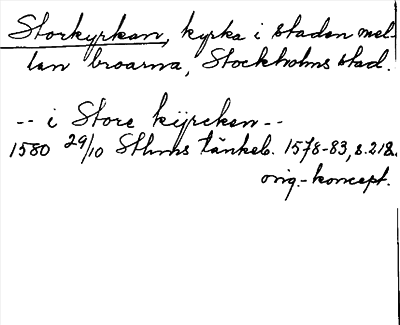 Storkyrkan, kyrka i staden mel-
lan broarna, Stockholms stad.
-- i Store kÿrcken --
1580 29/10 Sthms tänkeb. 1578-83, s. 218.
orig.-koncept.